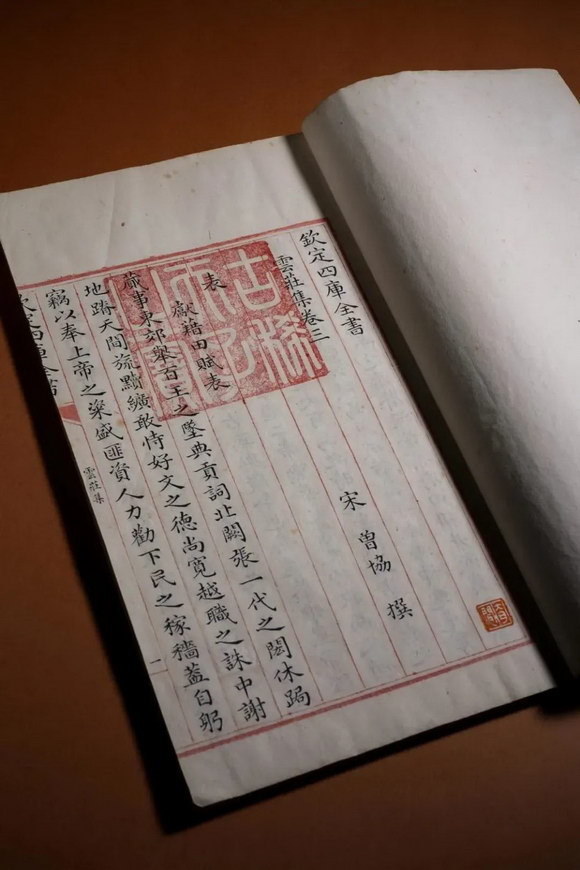 欽定四庫全書
雲莊集卷三
宋 曾協 撰
表
獻藉田賦表
蕆事東郊舉百王之墜典貢詞北闕張一代之閎休跼
地蹐天間旒黈纊敢恃好文之德尚寬越職之誅中謝
竊以奉上帝之粢盛匪資人力勸下民之稼穡蓋自躬
欽定四庫全書
雲莊集
一
古稀天子